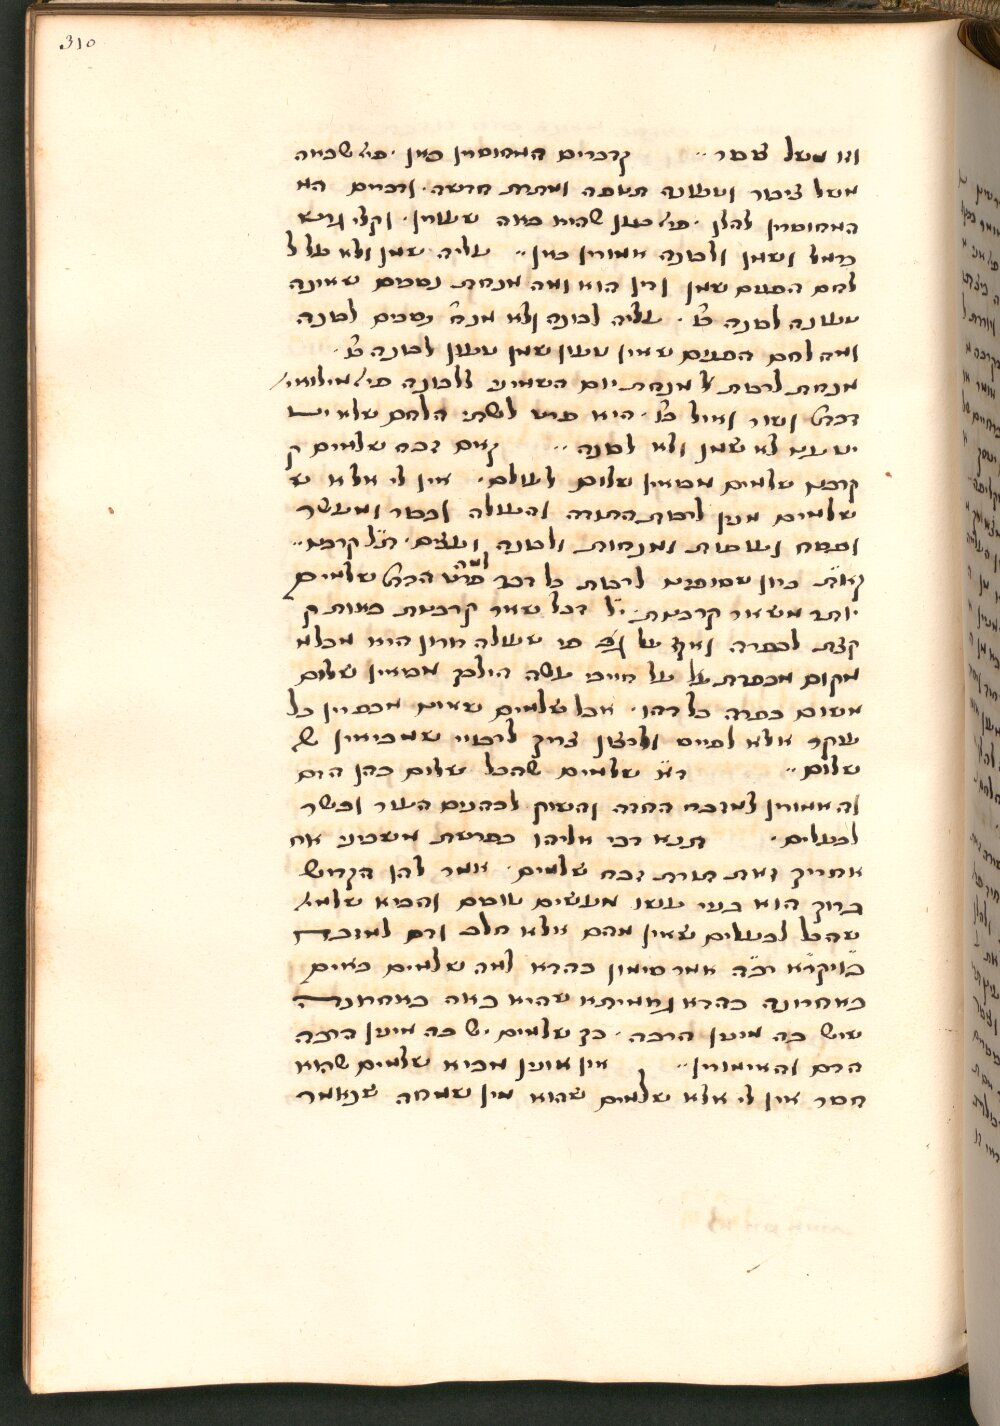 310
וזו משל עומר ·· קדברים המחוסרין כאן · פי' שבאה
משל ציבור וטעונה תנופה ומתרת חדשה · ודברים המ
המחוסרין להלן · פי' כגון שהיא באה שעורין · וקלוי גרש
כרמל ושמן ולבונה אמורין כאן ·· עליה שמן ולא על ל
לחם הפנים שמן ודין הוא ומה מנחת נסכים שאינה
טעונה לבונה כו' · עליה לבונה ולא מנח' נסכים לבונה
ומה לחם הפנים שאין טעון שמן טעון לבונה כו' ·
מנחת לרבות מנחת יום השמיני ללבונה פי' מילואי'
דכתי' ושור ואיל כו' · היא פרט לשתי הלחם שלא יש
יש עמ' לא שמן ולא לבונה ·· ואם זבח שלמים ק
קרבנו שלמים מביאין שלום לעולם · אין לי אלא ש
שלמים מנין לרבות התודה והעולה ובכור ומעשר
ופסח ועופות ומנחות ולבונה ועצים · ת"ל קרבנו ··
וא"ת כיון שסופינו לרבות כל דבר למה פרט הכתי' שלמים
יותר משאר קרבנות · י"ל דכל שאר קרבנות באות ק
קצת לכפרה ואף על גב שעולה דורון היא מכלמ
מקום מכפרת על חייבי עשה הילכך מביאין שלום
משום כפרה כל דהו · אבל שלמים שאינם מכפרין כל
עיקר אלא לפיים ולרצון צריך לרבויי שמביאין ש
שלום ·· ד"א שלמים שהכל שלום בהן הדם
והאמורין למזבח החזה והשוק לכהנים העור ובשר
לבעלים · תנא דבי אליהו בפרשת משכוני אח
אחריך זאת תורת זבח שלמים · אמר להן הקדוש
ברוך הוא בני עשו מעשים טובים והביא שלמי'
שהכל לבעלים שאין מהם אלא חלב ודם למזבח
בויקרא רבה אמר סימון בהדא למה שלמים באים
באחרונה בהדא גמאיתא שהיא באה באחרונה
שיש בה מיני' הרבה · כך שלמים יש בה מינין הרבה
הדם והאימורין ·· אין אונן מביא שלמים שהוא
חסר אין לי אלא שלמים שהוא מין שמחה שנאמר